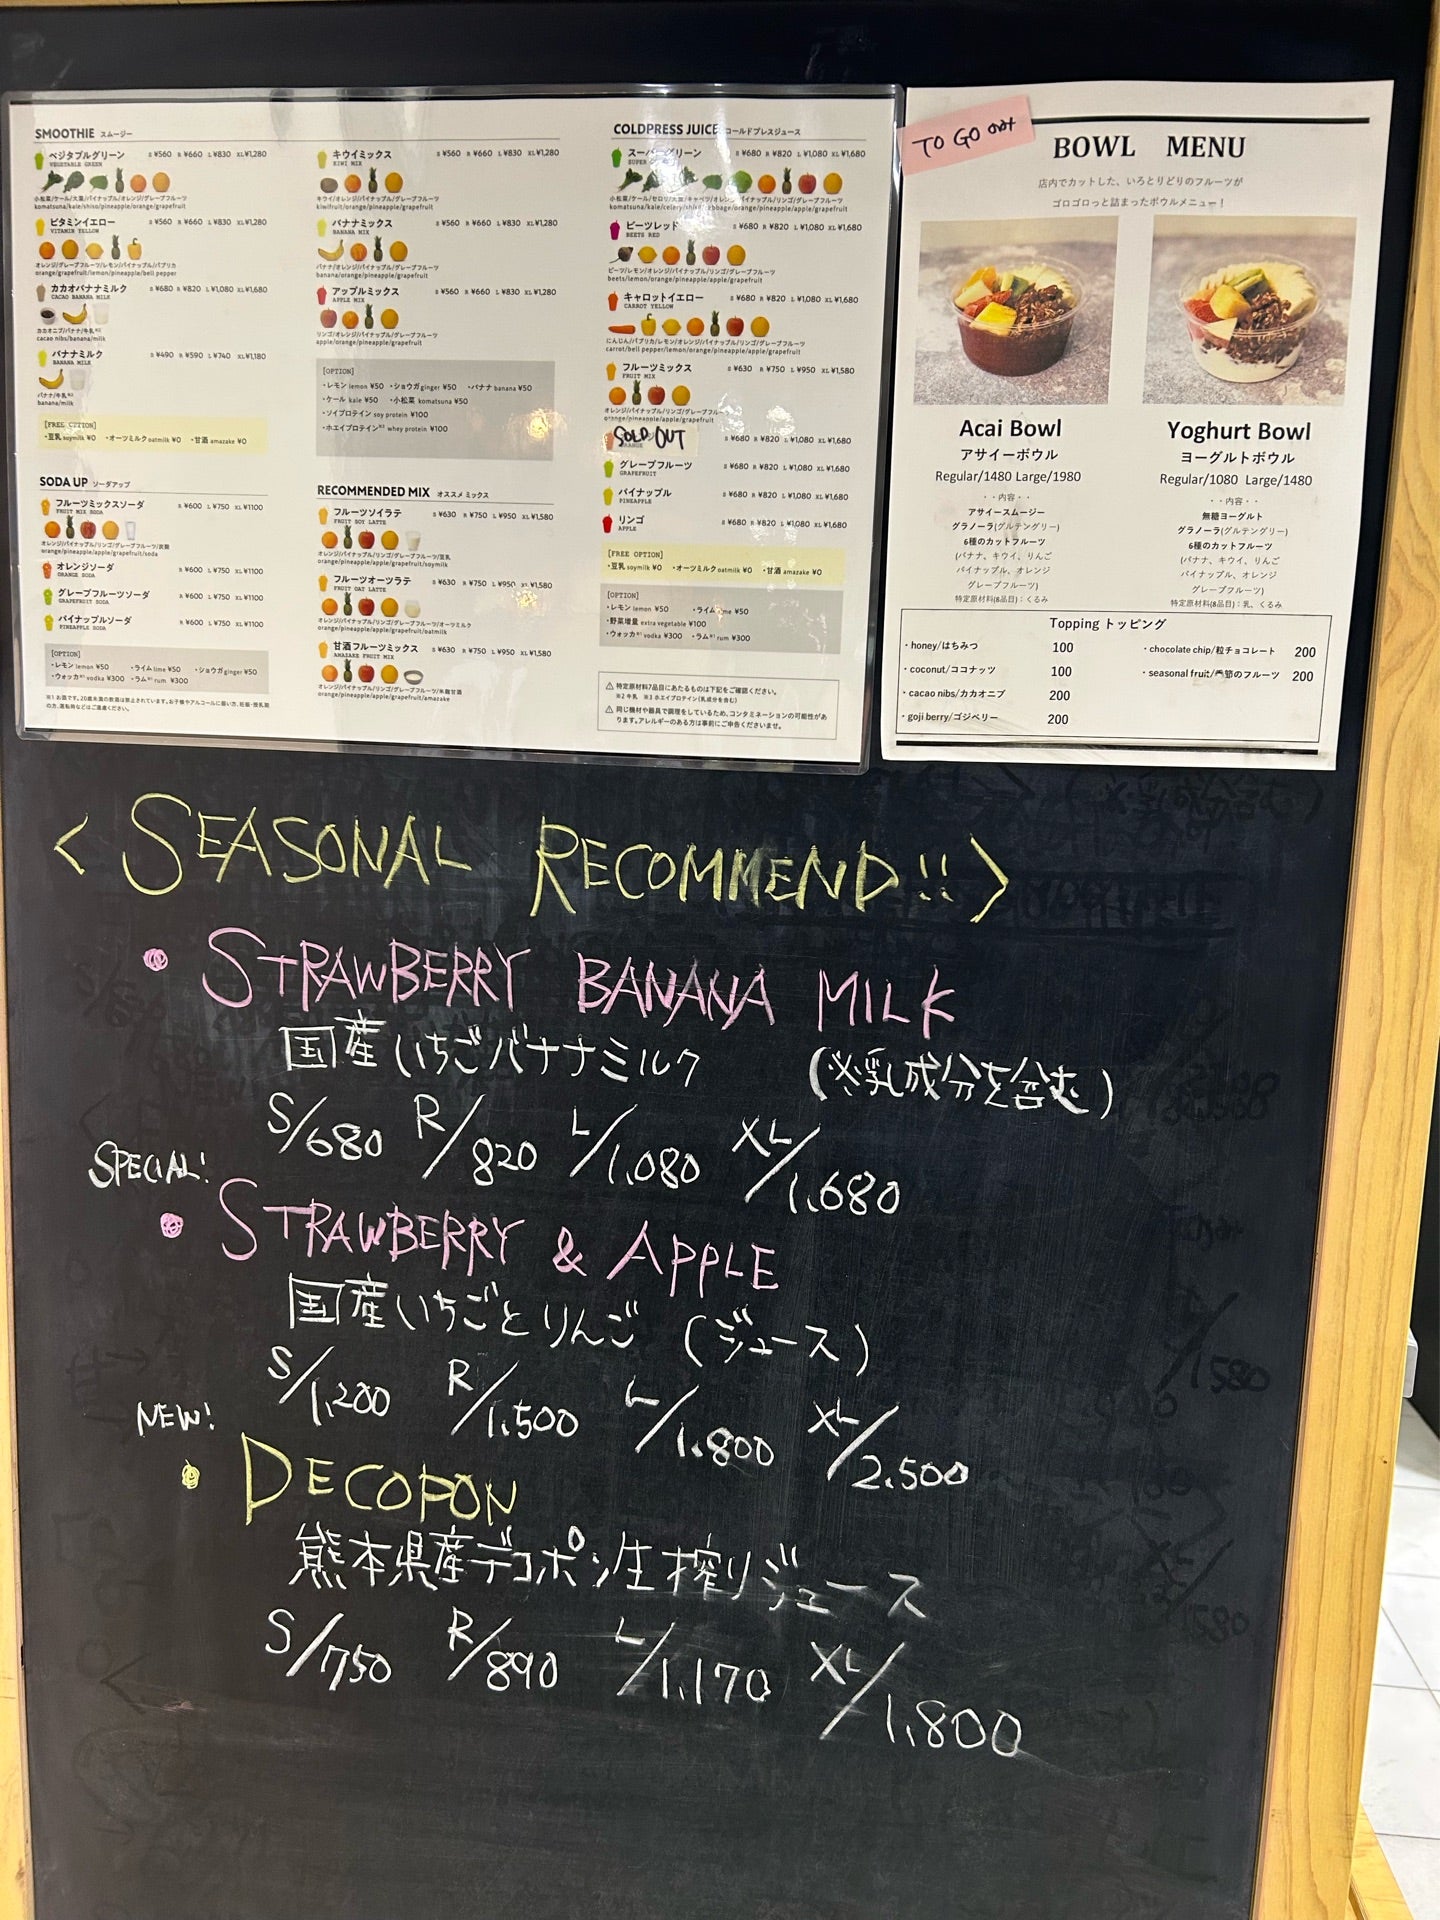 SMOOTHIE スムージー
ベジタブルグリーン S ¥560 R ¥660 L ¥830 XL¥1,280
VEGETABLE GREEN
小松菜/ケール/大葉/パイナップル/オレンジ/グレープフルーツ
komatsuna/kale/shiso/pineapple/orange/grapefruit
ビタミンイエロー S ¥560 R ¥660 L ¥830 XL¥1,280
VITAMIN YELLOW
オレンジ/グレープフルーツ/レモン/パイナップル/パプリカ
orange/grapefruit/lemon/pineapple/bell pepper
カカオバナナミルク S ¥680 R ¥820 L ¥1,080 XL¥1,680
CACAO BANANA MILK
カカオニブ/バナナ/牛乳※2
cacao nibs/banana/milk
バナナミルク S ¥490 R ¥590 L ¥740 XL¥1,180
BANANA MILK
バナナ/牛乳※2
banana/milk
[FREE OPTION]
・豆乳 soymilk ¥0 ・オーツミルク oatmilk ¥0 ・甘酒 amazake ¥0
SODA UP ソーダアップ
フルーツミックスソーダ R ¥600 L ¥750 XL¥1100
FRUIT MIX SODA
オレンジ/パイナップル/リンゴ/グレープフルーツ/炭酸
orange/pineapple/apple/grapefruit/soda
オレンジソーダ R ¥600 L ¥750 XL¥1100
ORANGE SODA
グレープフルーツソーダ R ¥600 L ¥750 XL¥1100
GRAPEFRUIT SODA
パイナップルソーダ R ¥600 L ¥750 XL¥1100
PINEAPPLE SODA
[OPTION]
・レモン lemon ¥50 ・ライム lime ¥50 ・ショウガ ginger ¥50
・ウォッカ※1 vodka ¥300 ・ラム※1 rum ¥300
キウイミックス S ¥560 R ¥660 L ¥830 XL¥1,280
KIWI MIX
キウイ/オレンジ/パイナップル/グレープフルーツ
kiwifruit/orange/pineapple/grapefruit
バナナミックス S ¥560 R ¥660 L ¥830 XL¥1,280
BANANA MIX
バナナ/オレンジ/パイナップル/グレープフルーツ
banana/orange/pineapple/grapefruit
アップルミックス S ¥560 R ¥660 L ¥830 XL¥1,280
APPLE MIX
リンゴ/オレンジ/パイナップル/グレープフルーツ
apple/orange/pineapple/grapefruit
[OPTION]
・レモン lemon ¥50 ・ショウガ ginger ¥50 ・バナナ banana ¥50
・ケール kale ¥50 ・小松菜 komatsuna ¥50
・ソイプロテイン soy protein ¥100
・ホエイプロテイン※3 whey protein ¥100
RECOMMENDED MIX オススメ ミックス
フルーツソイラテ S ¥630 R ¥750 L ¥950 XL¥1,580
FRUIT SOY LATTE
オレンジ/パイナップル/リンゴ/グレープフルーツ/豆乳
orange/pineapple/apple/grapefruit/soymilk
フルーツオーツラテ S ¥630 R ¥750 L ¥950 XL¥1,580
FRUIT OAT LATTE
オレンジ/パイナップル/リンゴ/グレープフルーツ/オーツミルク
orange/pineapple/apple/grapefruit/oatmilk
甘酒フルーツミックス S ¥630 R ¥750 L ¥950 XL¥1,580
AMAZAKE FRUIT MIX
オレンジ/パイナップル/リンゴ/グレープフルーツ/米麹甘酒
orange/pineapple/apple/grapefruit/amazake
COLDPRESS JUICE コールドプレスジュース
スーパーグリーン S ¥680 R ¥820 L ¥1,080 XL¥1,680
ビーツレッド S ¥680 R ¥820 L ¥1,080 XL¥1,680
BEETS RED
ビーツ/レモン/オレンジ/パイナップル/リンゴ/グレープフルーツ
beets/lemon/orange/pineapple/apple/grapefruit
キャロットイエロー S ¥680 R ¥820 L ¥1,080 XL¥1,680
CARROT YELLOW
にんじん/パプリカ/レモン/オレンジ/パイナップル/リンゴ/グレープフルーツ
carrot/bell pepper/lemon/orange/pineapple/apple/grapefruit
フルーツミックス S ¥630 R ¥750 L ¥950 XL¥1,580
FRUIT MIX
オレンジ/パイナップル/リンゴ/グレープフルーツ
orange/pineapple/apple/grapefruit
SOLD OUT S ¥680 R ¥820 L ¥1,080 XL¥1,680
グレープフルーツ S ¥680 R ¥820 L ¥1,080 XL¥1,680
GRAPEFRUIT
パイナップル S ¥680 R ¥820 L ¥1,080 XL¥1,680
PINEAPPLE
リンゴ S ¥680 R ¥820 L ¥1,080 XL¥1,680
APPLE
[FREE OPTION]
・豆乳 soymilk ¥0 ・オーツミルク oatmilk ¥0 ・甘酒 amazake ¥0
[OPTION]
・レモン lemon ¥50 ・ライム lime ¥50
・野菜増量 extra vegetable ¥100
・ウォッカ※1 vodka ¥300 ・ラム※1 rum ¥300
特定原材料7品目にあたるものは下記をご確認ください。
※2 牛乳 ※3 ホエイプロテイン(乳成分を含む)
同じ機材や器具で調理をしているため、コンタミネーションの可能性があ
ります。アレルギーのある方は事前にご申告くださいませ。
TO GO only
BOWL MENU
店内でカットした、いろとりどりのフルーツが
ゴロゴロっと詰まったボウルメニュー！
Acai Bowl
アサイーボウル
Regular/1480 Large/1980
・・内容・・
アサイースムージー
グラノーラ(グルテンフリー)
6種のカットフルーツ
(バナナ、キウイ、りんご
パイナップル、オレンジ
グレープフルーツ)
特定原材料(8品目)：くるみ
Yoghurt Bowl
ヨーグルトボウル
Regular/1080 Large/1480
・・内容・・
無糖ヨーグルト
グラノーラ(グルテンフリー)
6種のカットフルーツ
(バナナ、キウイ、りんご
パイナップル、オレンジ
グレープフルーツ)
特定原材料(8品目)：乳、くるみ
Topping トッピング
・honey/はちみつ 100
・coconut/ココナッツ 100
・cacao nibs/カカオニブ 200
・goji berry/ゴジベリー 200
・chocolate chip/粒チョコレート 200
・seasonal fruit/季節のフルーツ 200
<SEASONAL RECOMMEND!!>
・STRAWBERRY BANANA MILK
国産いちごバナナミルク (※乳成分を含む)
S/680 R/820 L/1,080 XL/1,680
SPECIAL!
・STRAWBERRY & APPLE
国産いちごとりんご (ジュース)
S/1,200 R/1,500 L/1,800 XL/2,500
NEW!
・DECOPON
熊本県産デコポン生搾りジュース
S/750 R/890 L/1,170 XL/1,800